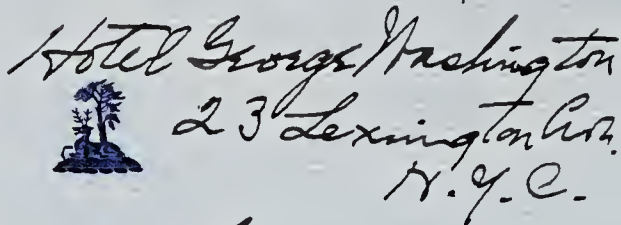 Hotel George Washington
23 Lexington Ave.
N.Y.C.